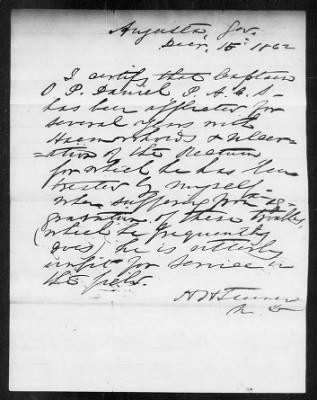 Augusta, Geo.
Decr. 15th 1862
I certify that Captain
O P. Daniel P. A. C. S-
has been afflicted for
several years with
Haemorrhoids & ulcer-
-ation of the Rectum
for which he has been
treated by myself-
when suffering from ag-
gravation of these troubles,
(which he frequently
does) he is utterly
unfit for service in
the field.
M D